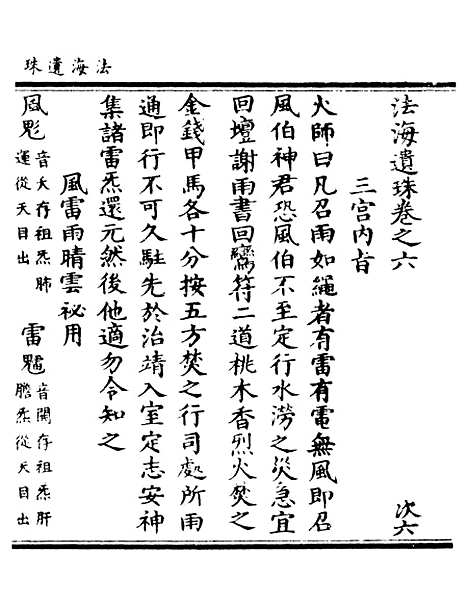 法海遺珠
法海遺珠卷之六
次六
三宫内旨
火師曰凡召雨如繩者有雷有電無風即召
風伯神君恐風伯不至定行水澇之災急宜
回壇謝雨書回鸞符二道桃木香烈火焚之
金錢甲馬各十分按五方焚之行司處所雨
通即行不可久駐先於治靖入室定志安神
集諸雷炁還元然後他適勿令知之
風雷雨晴雲祕用
音夭存祖炁肺
運從天目出
音開存祖炁肝
膽炁從天目出